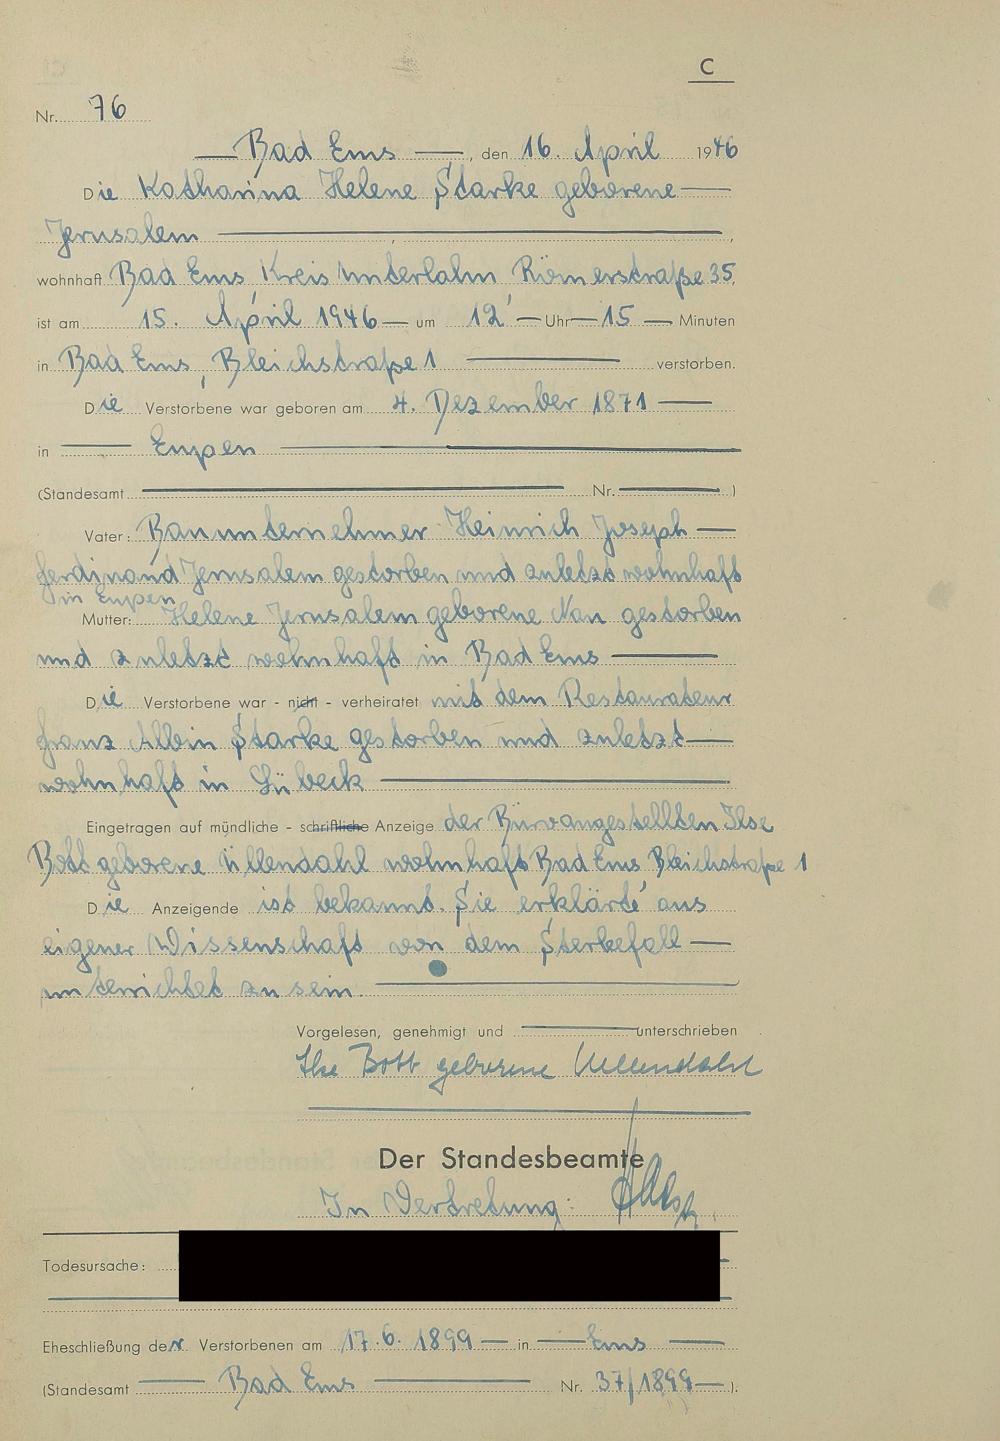 C
Nr. 76
Bad Ems, den 16. April 1946
Die Katharina Helene Starke geborene
Jerusalem,
wohnhaft Bad Ems, Kreis Unterlahn Römerstraße 35,
ist am 15. April 1946 um 12 Uhr 15 Minuten
in Bad Ems, Bleichstraße 1 verstorben.
Die Verstorbene war geboren am 4. Dezember 1871
in Eupen
(Standesamt Nr. )
Vater: Bauunternehmer Heinrich Joseph
Ferdinand Jerusalem gestorben und zuletzt wohnhaft
in Eupen
Mutter: Helene Jerusalem geborene Nau gestorben
und zuletzt wohnhaft in Bad Ems
Die Verstorbene war - nicht - verheiratet mit dem Restaurateur
Franz Albin Starke gestorben und zuletzt
wohnhaft in Lübeck
Eingetragen auf mündliche - schriftliche Anzeige der Büroangestellten Ilse
Bott geborene Üllendahl wohnhaft Bad Ems Bleichstraße 1
Die Anzeigende ist bekannt. Sie erklärte aus
eigener Wissenschaft von dem Sterbefall
unterrichtet zu sein.
Vorgelesen, genehmigt und unterschrieben
Ilse Bott geborene Üllendahl
Der Standesbeamte
In Vertretung:
Todesursache:
Eheschließung der Verstorbenen am 17.6.1899 in Ems
(Standesamt Bad Ems Nr. 37/1899 ).